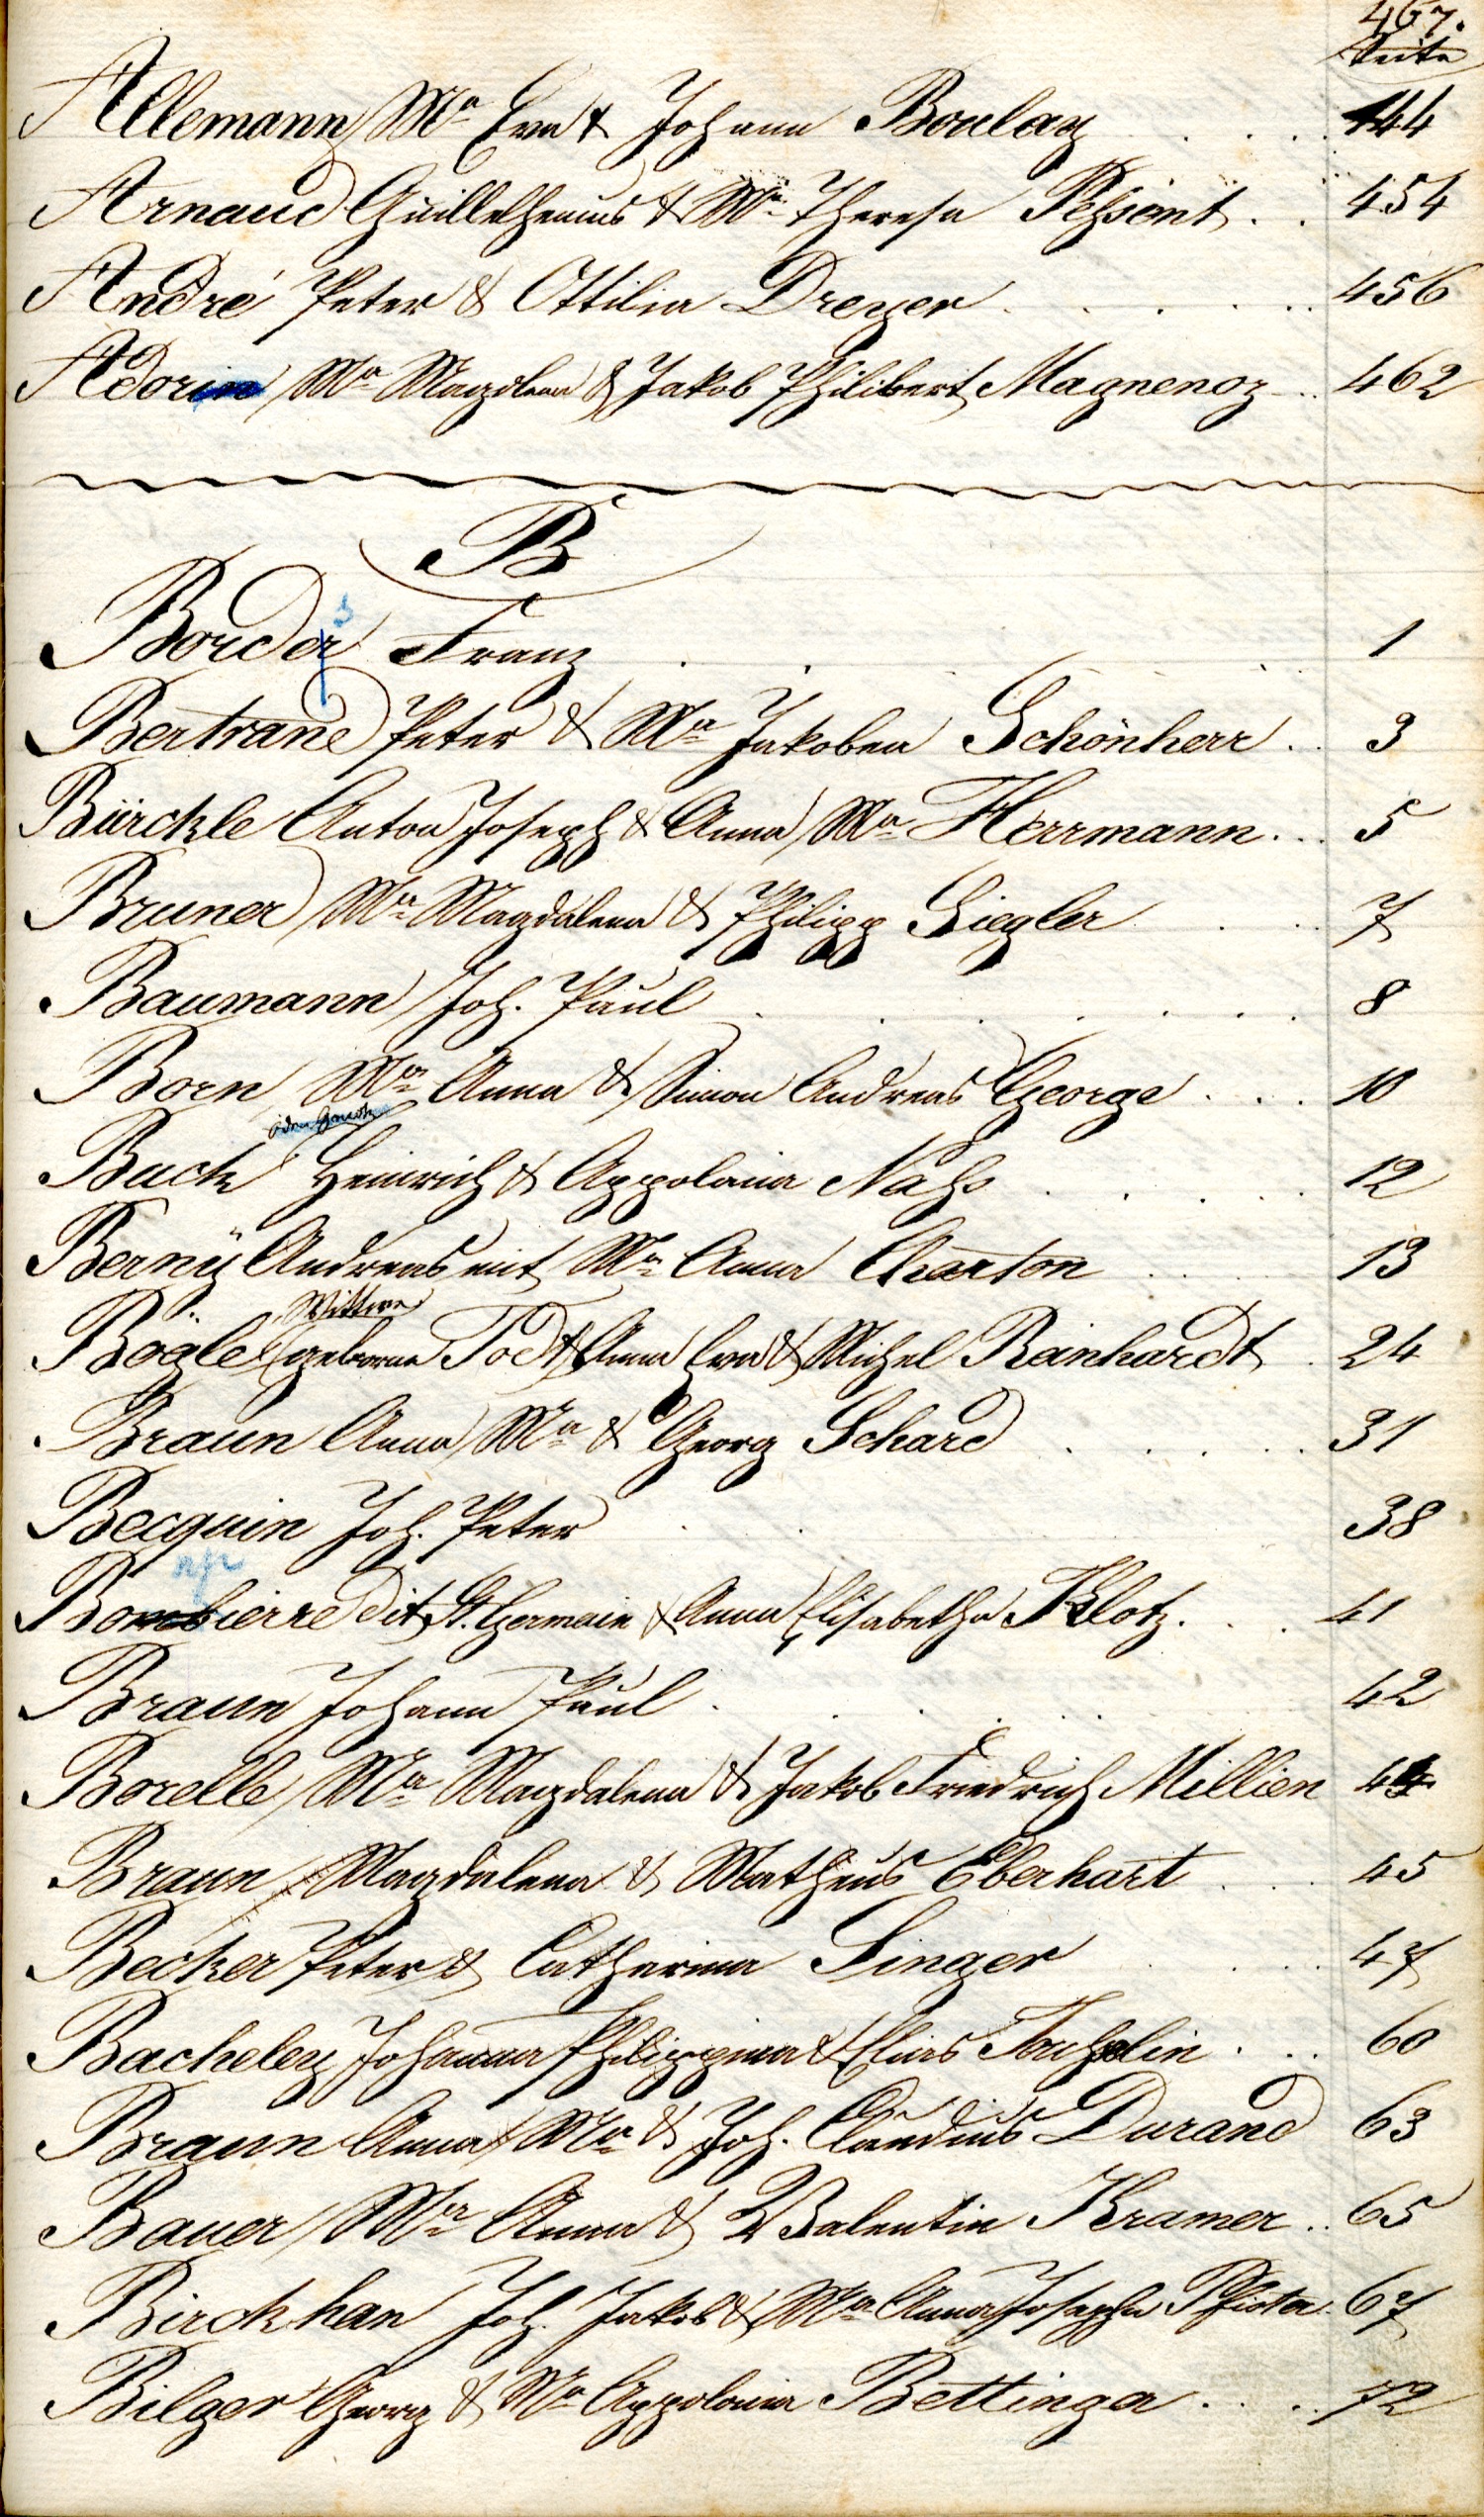 467.
Seite
Allemann Ma Eva & Johann Boulay . . . 444
Arnaud Guillelhemus & Ma Theresa Pehsent . . 454
André Peter & Ottilia Dreyer . . . . 456
Adorin Ma Magdlena & Jakob Philibert Magnenoz . . 462
B
Border Franz . . . 1
Bertrand Peter & Ma Jakobea Schönherr . . 3
Bürckle Anton Joseph & Anna Ma Herrmann . . . 5
Bruner Ma Magdalena & Philipp Siegler . . . 7
Baumann Joh. Paul . . . . . . 8
Born Ma Anna & Simon Andreas George . . . 10
oder
Buck Heinrich & Appolonia Nahs . . . . 12
Berny Andreas mit Ma Anna Charton . . . 13
Wittwe
Bögle (geborne Todt) Anna Eva & Michel Reinhardt . 24
Braun Anna Ma & Georg Schard . . . . 31
Becquin Joh. Peter . . 38
Bombierre dit St. Germain & Anna Elisabetha Klotz . . . 41
Braun Johann Paul . . . . . 42
Borelle Ma Magdalena & Jakob Friedrich Millien 44
Braun Magdalena & Matheus Eberhart . . . 45
Becker Peter & Catharina Singer . . . . 47
Bacheley Johanna Philippina & Elias . . . 60
Braun Anna Ma & Joh. Claudius Durand 63
Bauer Ma Anna & Valentin Kramer . . 65
Birckhan Joh. Jakob & Ma Anna Josepha Pfister . 67
Bilger Georg & Ma Appolonia Bettinger . . . 72